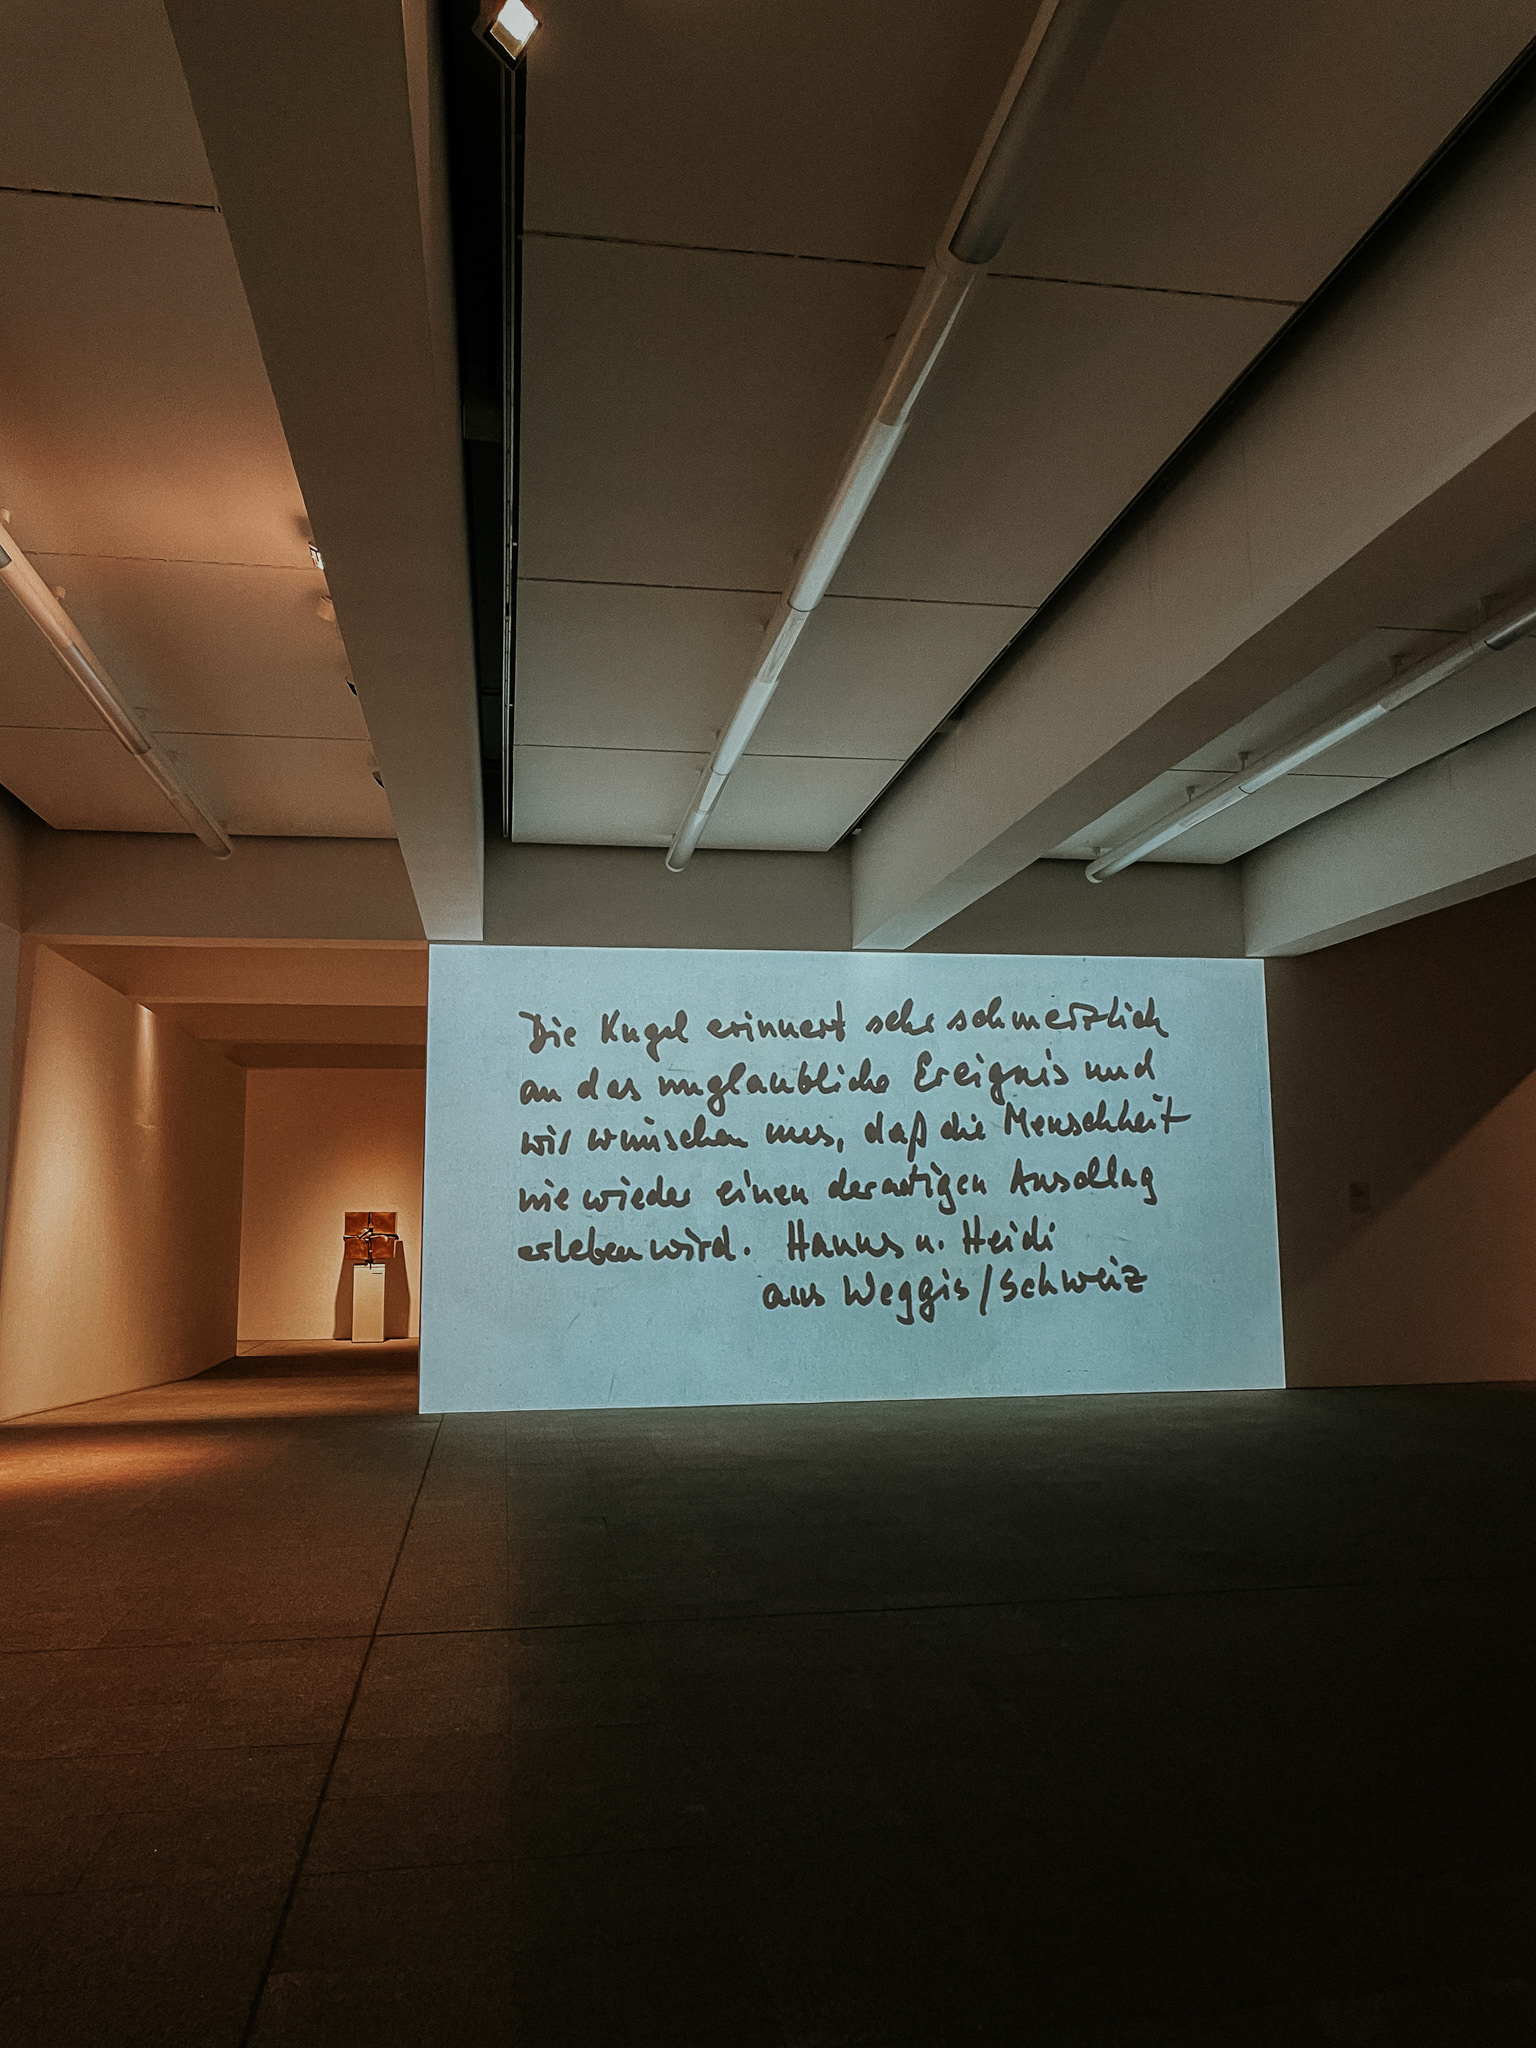 Die Kugel erinnert sehr schmerzlich
an das unglaubliche Ereignis und
wir wünschen uns, daß die Menschheit
nie wieder einen derartigen Anschlag
erleben wird. Hanns u. Heidi
aus Weggis/Schweiz